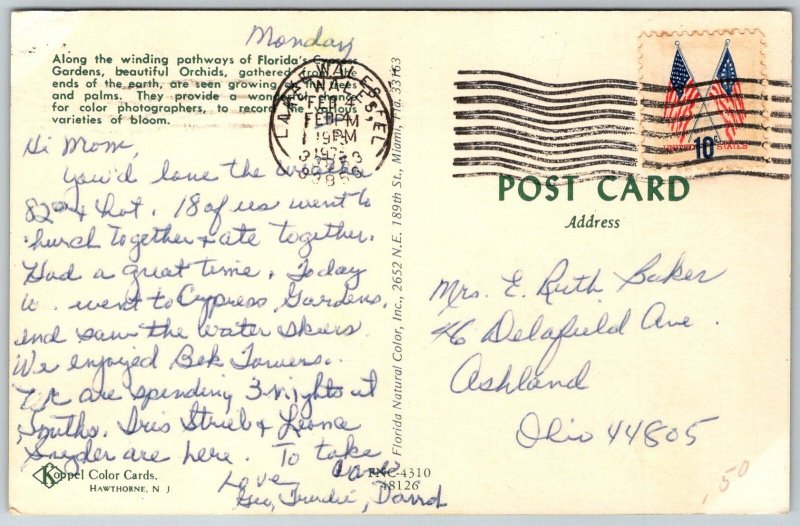 Monday
Along the winding pathways of Florida's Cypress
Gardens, beautiful Orchids, gathered from the
ends of the earth, are seen growing in the trees
and palms. They provide a wonderful setting
for color photographers, to record the various
varieties of bloom.
Hi Mom,
You'd love the weather
82° & hot. 18 of us went to
church together & ate together.
Had a great time. Today
we went to Cypress Gardens,
and saw the water skiers.
We enjoyed Bok Towers.
We are spending 3 nights at
Smiths. Iris Strieb & Leona
Snyder are here. To take
care
Love
Geo, Trudie, David
Koppel Color Cards,
HAWTHORNE, N. J
FNC-4310
48126
Florida Natural Color, Inc., 2652 N.E. 189th St., Miami, Fla. 33163
LAKE WALES, FL
FEB
PM
10c
UNITED STATES
POST CARD
Address
Mrs. E. Ruth Baker
46 Delafield Ave.
Ashland
Ohio 44805
.50